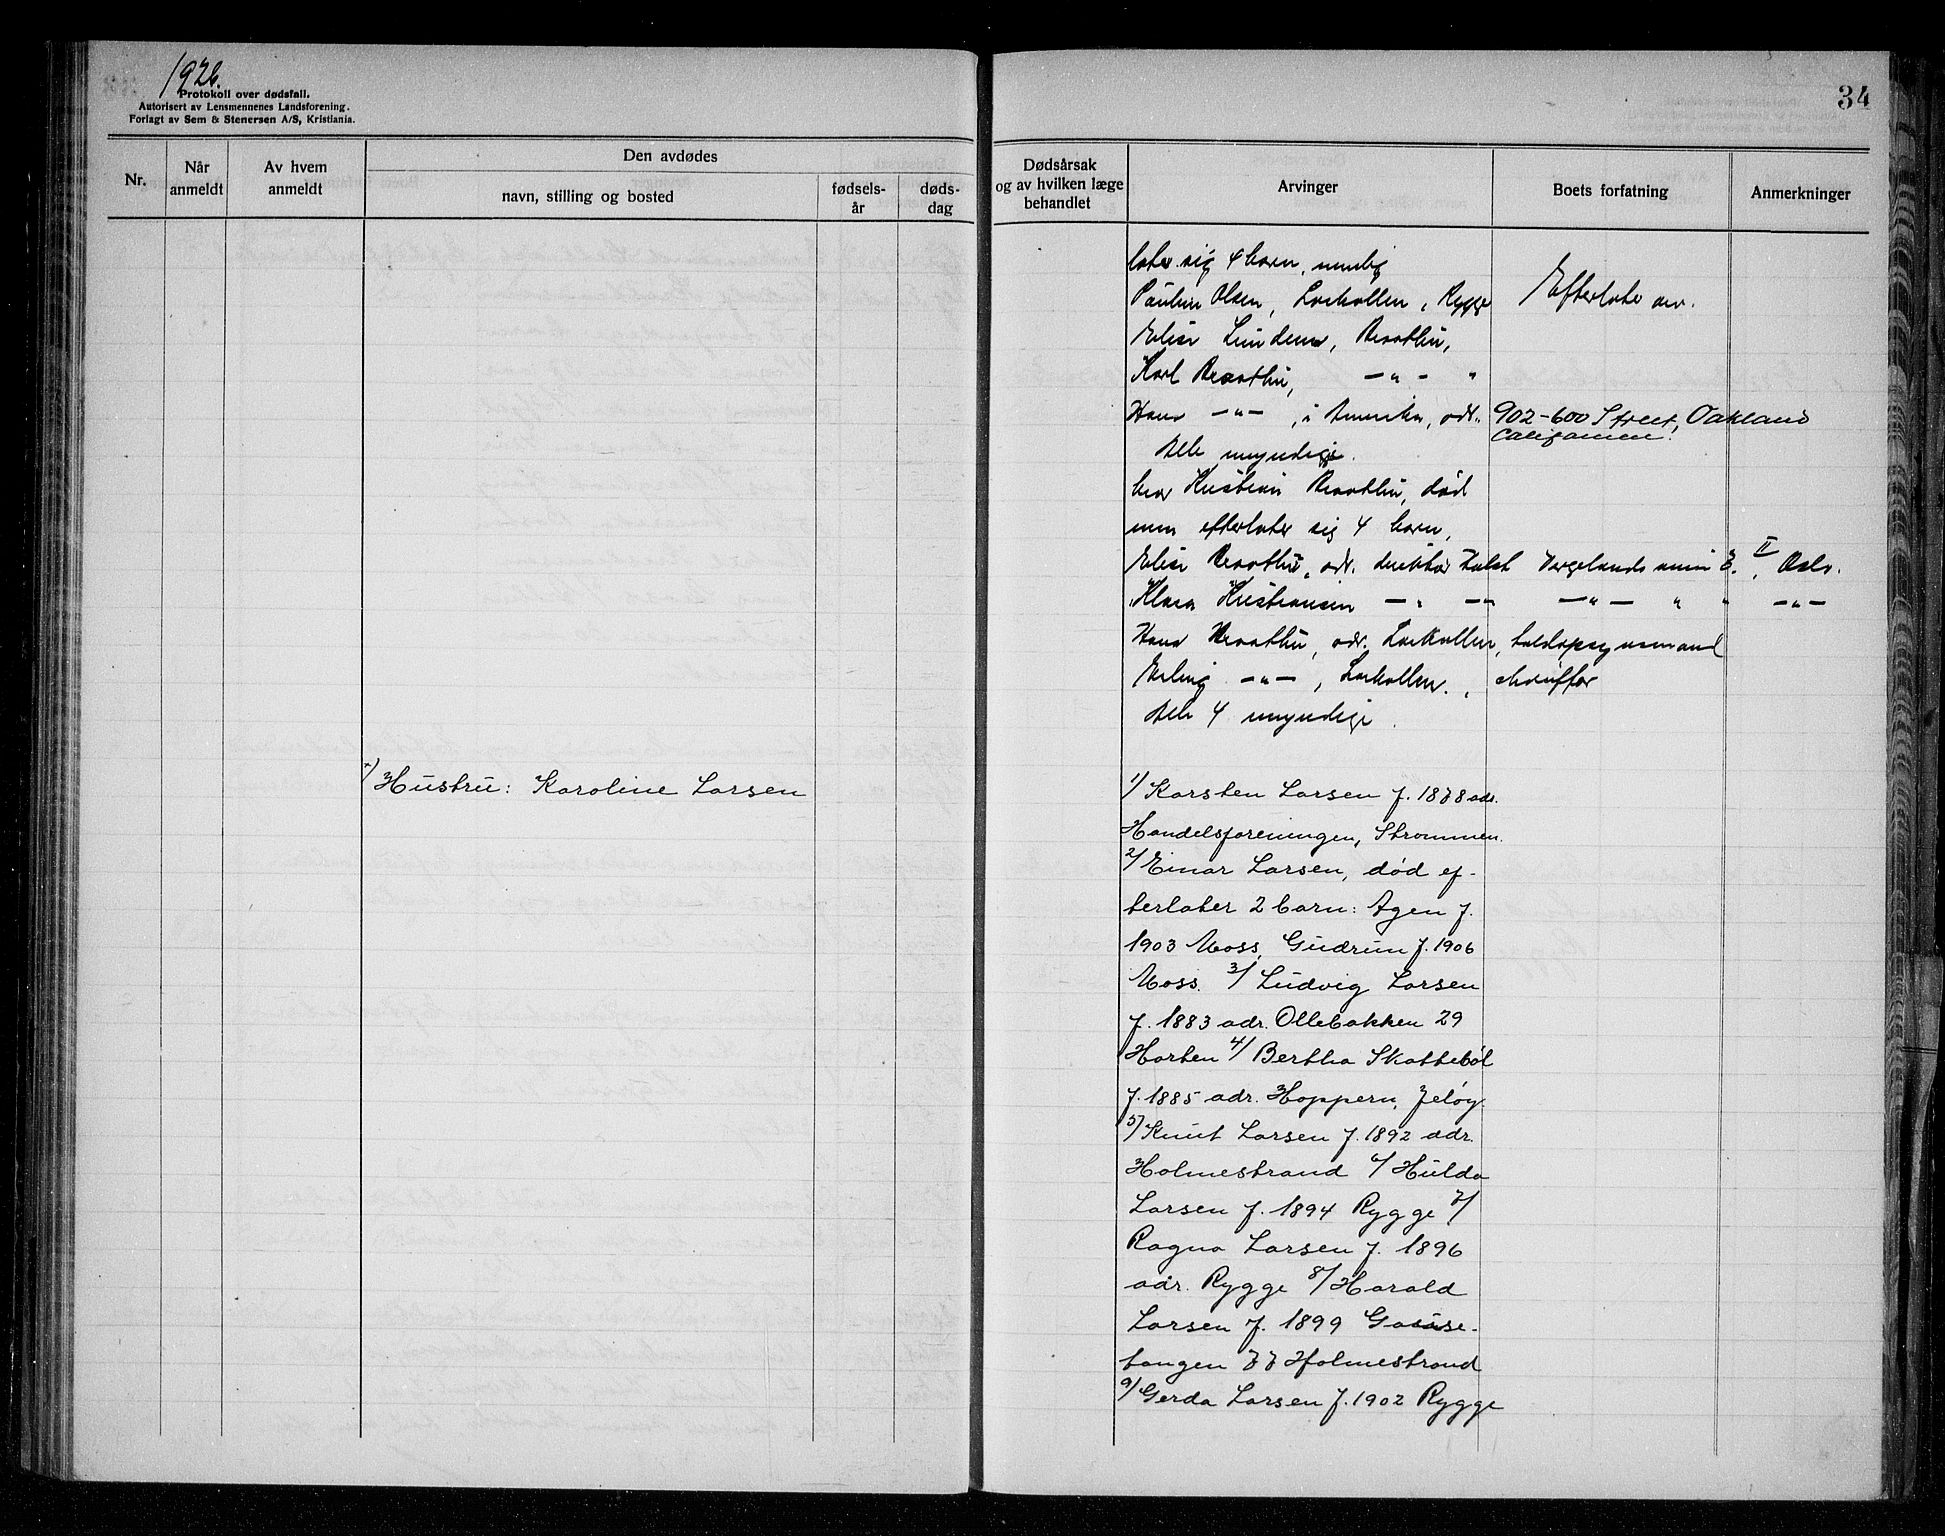 1926.
Protokoll over dødsfall.
Autorisert av Lensmennenes Landsforening.
Forlagt av Sem & Stenersen A/S, Kristiania.
34
Nr.
Når anmeldt
Av hvem anmeldt
Den avdødes
navn, stilling og bosted
fødsels-år
døds-dag
Dødsårsak og av hvilken læge behandlet
Arvinger
Boets forfatning
Anmerkninger
later sig 4 barn, nemlig
Pauline Olsen, Larkollen, Rygge
Efterlater arv.
Elise Lunden,
Karl — " — "
Hans — " —, i Amerika, adr. 902-600 Street, Oakland
Californien.
Alle myndige.
bror Kristian død
men efterlater sig 4 barn,
Elise adr. direktør Holst Vergelands veien 3. II, Oslo.
Klara Kristiansen — " — " — " — " " — " —
Hans adr. Larkollen, toldopsynsmand
Erling — " —, Larkollen, chauffør
Alle 4 myndige.
x/ Hustru: Karoline Larsen
1/ Karsten Larsen f. 1878 adr.
Handelsforeningen, Strømmen.
2/ Einar Larsen, død ef-
terlater 2 barn: Agen f.
1903 Moss, Gudrun f. 1906
Moss. 3/ Ludvig Larsen
f. 1883 adr. Ollebakken 29
Horten 4/ Bertha Skattebøl
f. 1885 adr. Hoppern, Jeløy.
5/ Knut Larsen f. 1892 adr.
Holmestrand 6/ Hulda
Larsen f. 1894 Rygge 7/
Ragna Larsen f. 1896
adr. Rygge 8/ Harald
Larsen f. 1899 Gaase-
tangen 77 Holmestrand
9/ Gerda Larsen f. 1902 Rygge